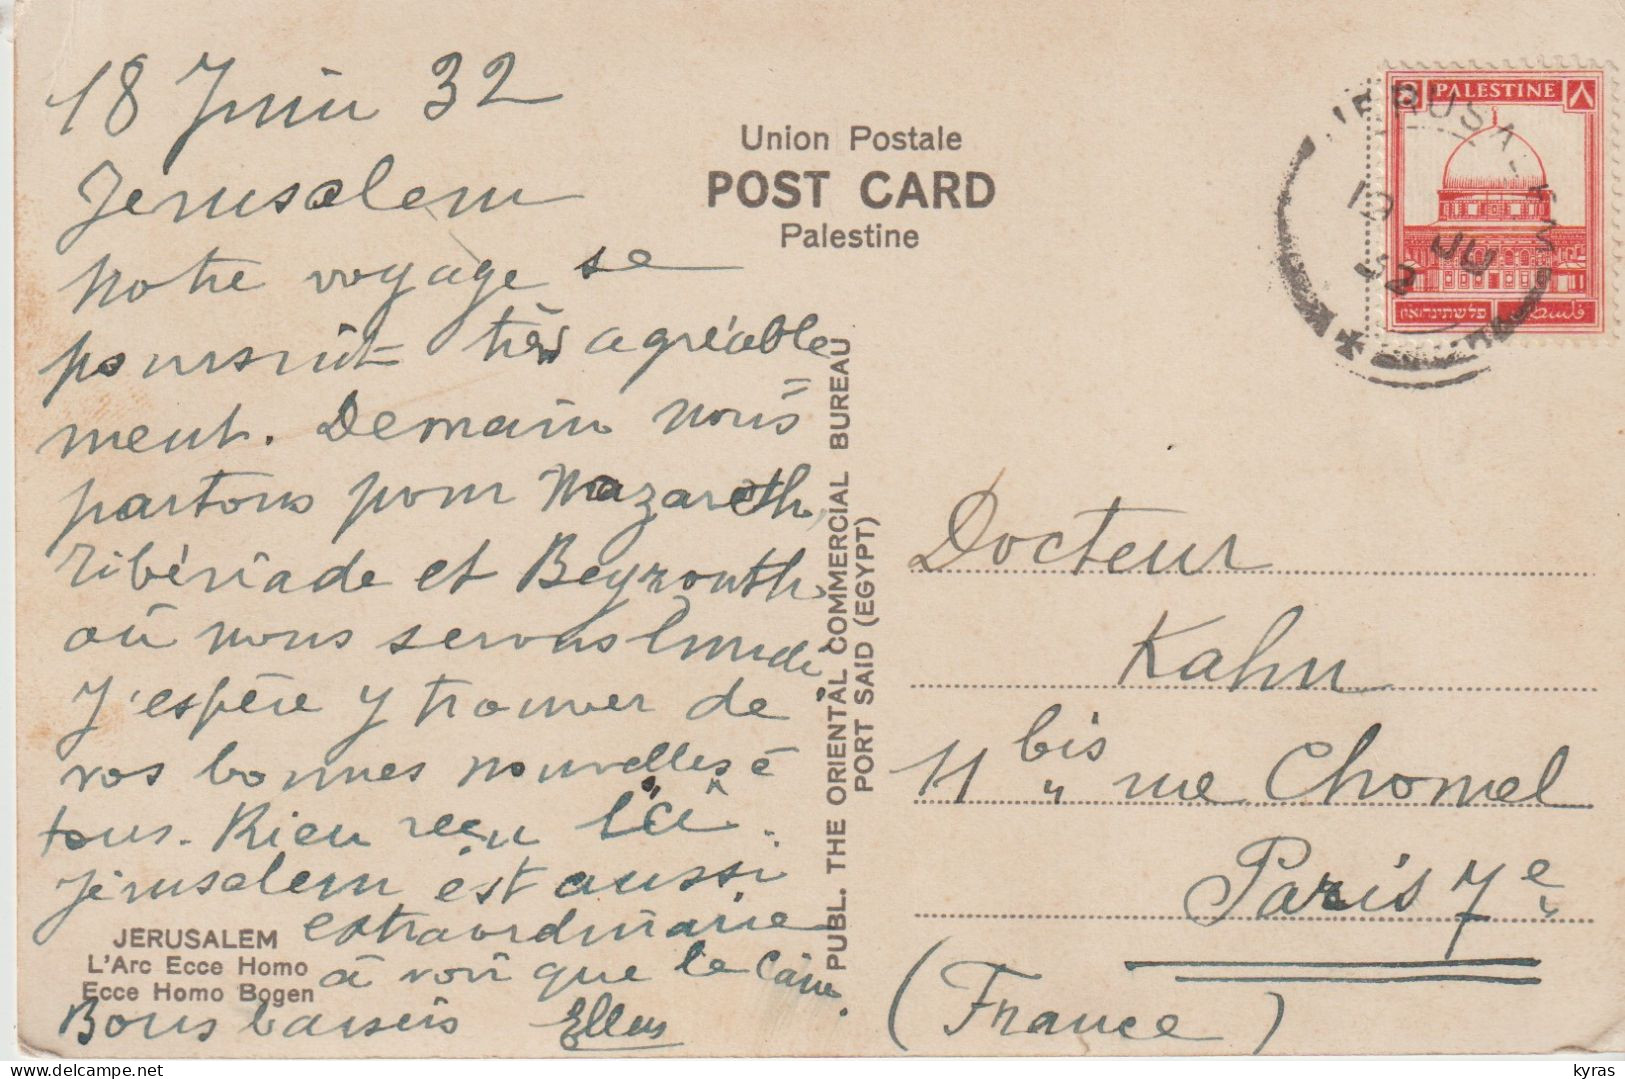 18 Juin 32
Jerusalem
Notre voyage se
poursuit très agréable
ment. Demain nous
partons pour Nazareth,
Tibériade et Beyrouth
où nous serons lundi.
J'espère y trouver de
vos bonnes nouvelles à
tous. Rien reçu ici.
Jérusalem est aussi
extraordinaire
à voir que le Caire.
Bons baisers
JERUSALEM
L'Arc Ecce Homo
Ecce Homo Bogen
Union Postale
POST CARD
Palestine
PUBL. THE ORIENTAL COMMERCIAL BUREAU
PORT SAID (EGYPT)
PALESTINE
٨
فلسطين
פלשתינה א״י
JERUSALEM
JE
Docteur
Kahn
11 bis rue Chomel
Paris 7e
(France)
kyras